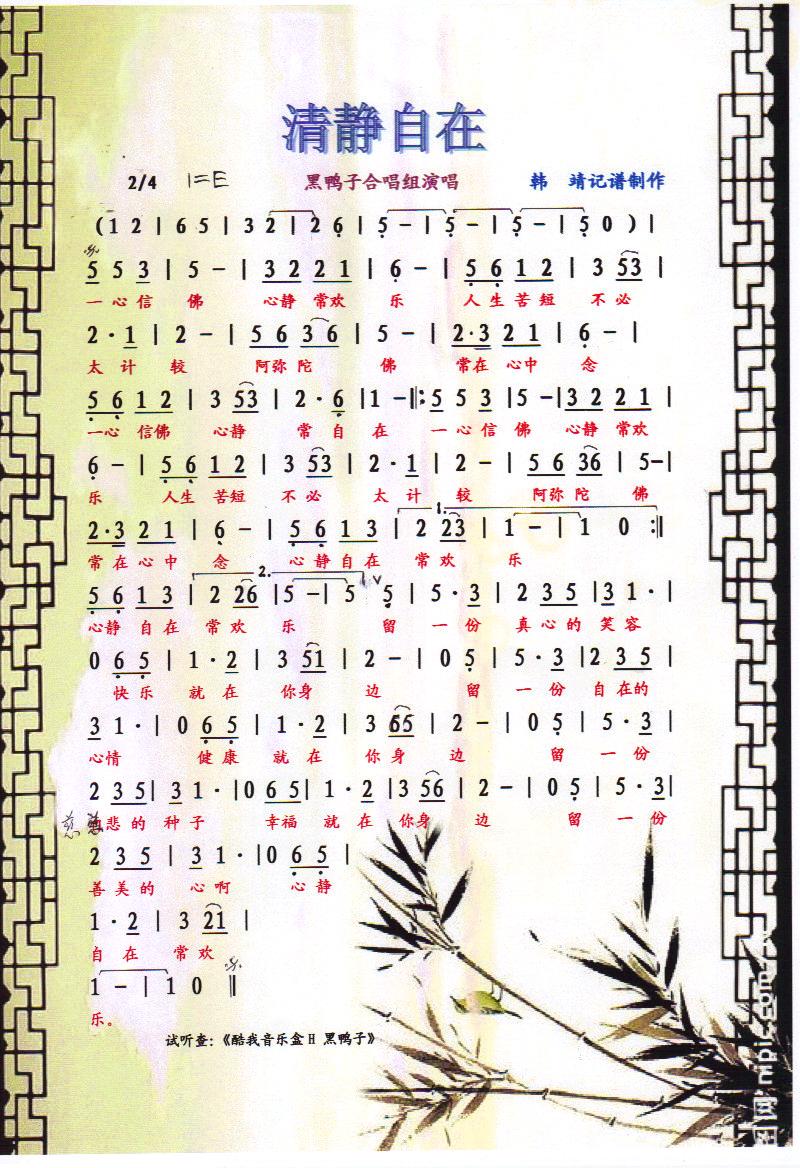 清静自在
2/4 1=E 黑鸭子合唱组演唱 韩 靖记谱制作
(1 2 | 6 5 | 3 2 | 2 6 | 5 - | 5 - | 5 - | 5 0 ) |
5 5 3 | 5 - | 3 2 2 1 | 6 - | 5 6 1 2 | 3 53 |
一 心 信 佛 心静 常欢 乐 人 生 苦 短 不 必
2 · 1 | 2 - | 5 6 3 6 | 5 - | 2·3 2 1 | 6 - |
太 计 较 阿弥 陀 佛 常在 心中 念
5 6 1 2 | 3 53 | 2 · 6 | 1 - ‖: 5 5 3 | 5 - | 3 2 2 1 |
一心 信佛 心静 常 自 在 一 心 信 佛 心静 常欢
6 - | 5 6 1 2 | 3 53 | 2 · 1 | 2 - | 5 6 36 | 5 - |
乐 人生 苦短 不 必 太 计 较 阿弥 陀 佛
1.
2·3 2 1 | 6 - | 5 6 1 3 | 2 23 | 1 - | 1 0 :‖
常 在 心 中 念 心 静 自 在 常 欢 乐
2.
5 6 1 3 | 2 26 | 5 - | 5 ∨ 5 | 5 · 3 | 2 3 5 | 3 1 · |
心静 自 在 常 欢 乐 留 一 份 真 心 的 笑 容
0 6 5 | 1 · 2 | 3 51 | 2 - | 0 5 | 5 · 3 | 2 3 5 |
快 乐 就 在 你身 边 留 一 份 自 在的
3 1 · | 0 6 5 | 1 · 2 | 3 65 | 2 - | 0 5 | 5 · 3 |
心情 健 康 就 在 你 身 边 留 一 份
2 3 5 | 3 1 · | 0 6 5 | 1 · 2 | 3 56 | 2 - | 0 5 | 5 · 3 |
慈 悲 的 种 子 幸福 就 在 你身 边 留 一 份
2 3 5 | 3 1 · | 0 6 5 |
善 美 的 心 啊 心 静
1 · 2 | 3 21 |
自 在 常 欢
1 - | 1 0 ‖
乐。
试听查：《酷我音乐盒 H 黑鸭子》